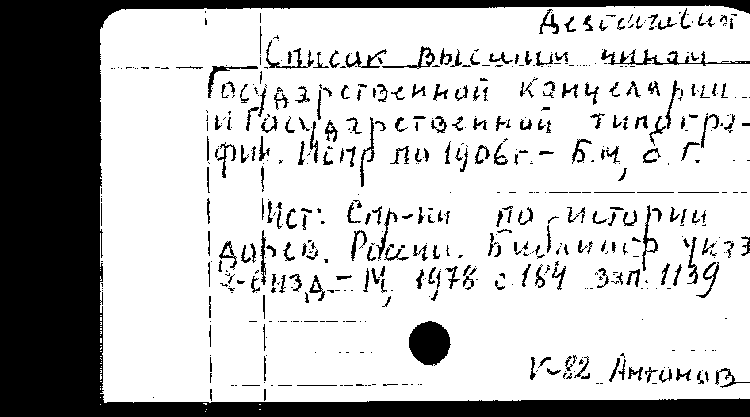 Список высшим чинам
Государственной канцелярии
и Государственной типогра-
фии. Испр по 1906г.- Б.м, б.г.
Ист: Спр-ки по истории
дорев. России. Библиогр указ
2-е изд.- М, 1978 с 184 зап. 1139
V-82 Антонов